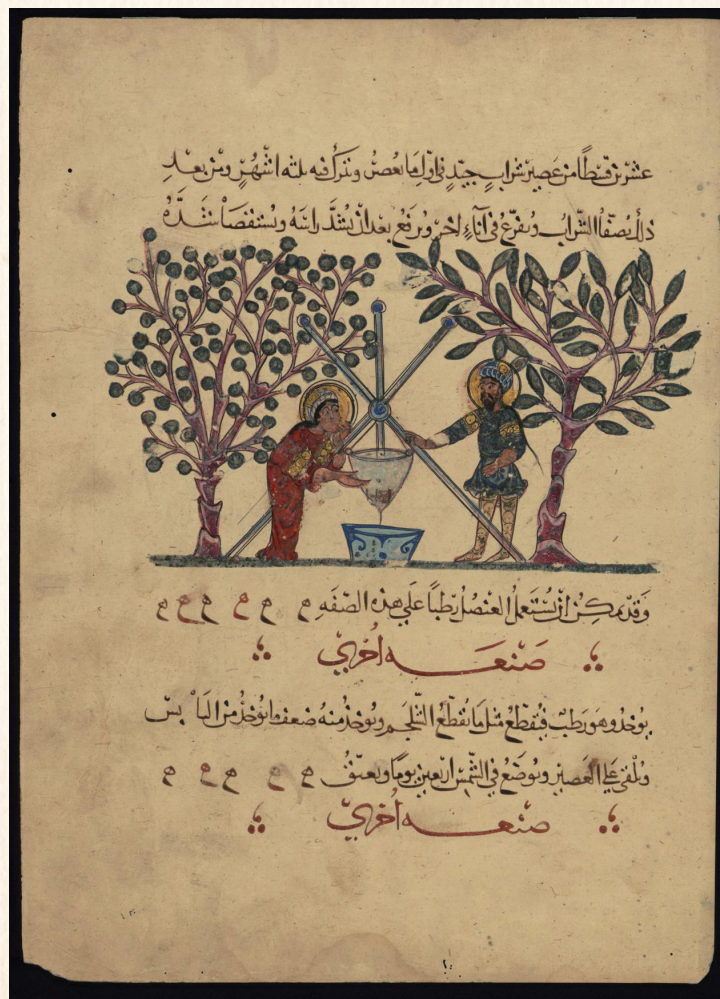 عشرين قسطًا من عصير شراب جيد في اول ما يعصر ويترك فيه ثلثه اشهر ومن بعد
ذلك يصفا الشراب ويفرغ في اناء اخر ويرفع بعد ان يشد راسه ويستقصا شده
وقد يمكن ان يستعمل العنصل رطبًا علي هذه الصفه
صنعه اخري
يوخذ وهو رطب فيقطع مثل ما يقطع الشلجم ويوخذ منه ضعف ما يوخذ من اليابس
ويلقي علي العصير ويوضع في الشمس اربعين يومًا ويعتق
صنعه اخري